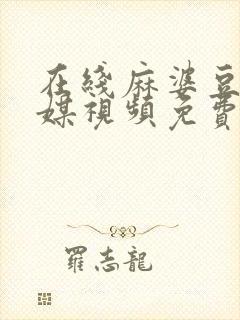 在綫麻婆豆
媒視頻免費
羅志龍